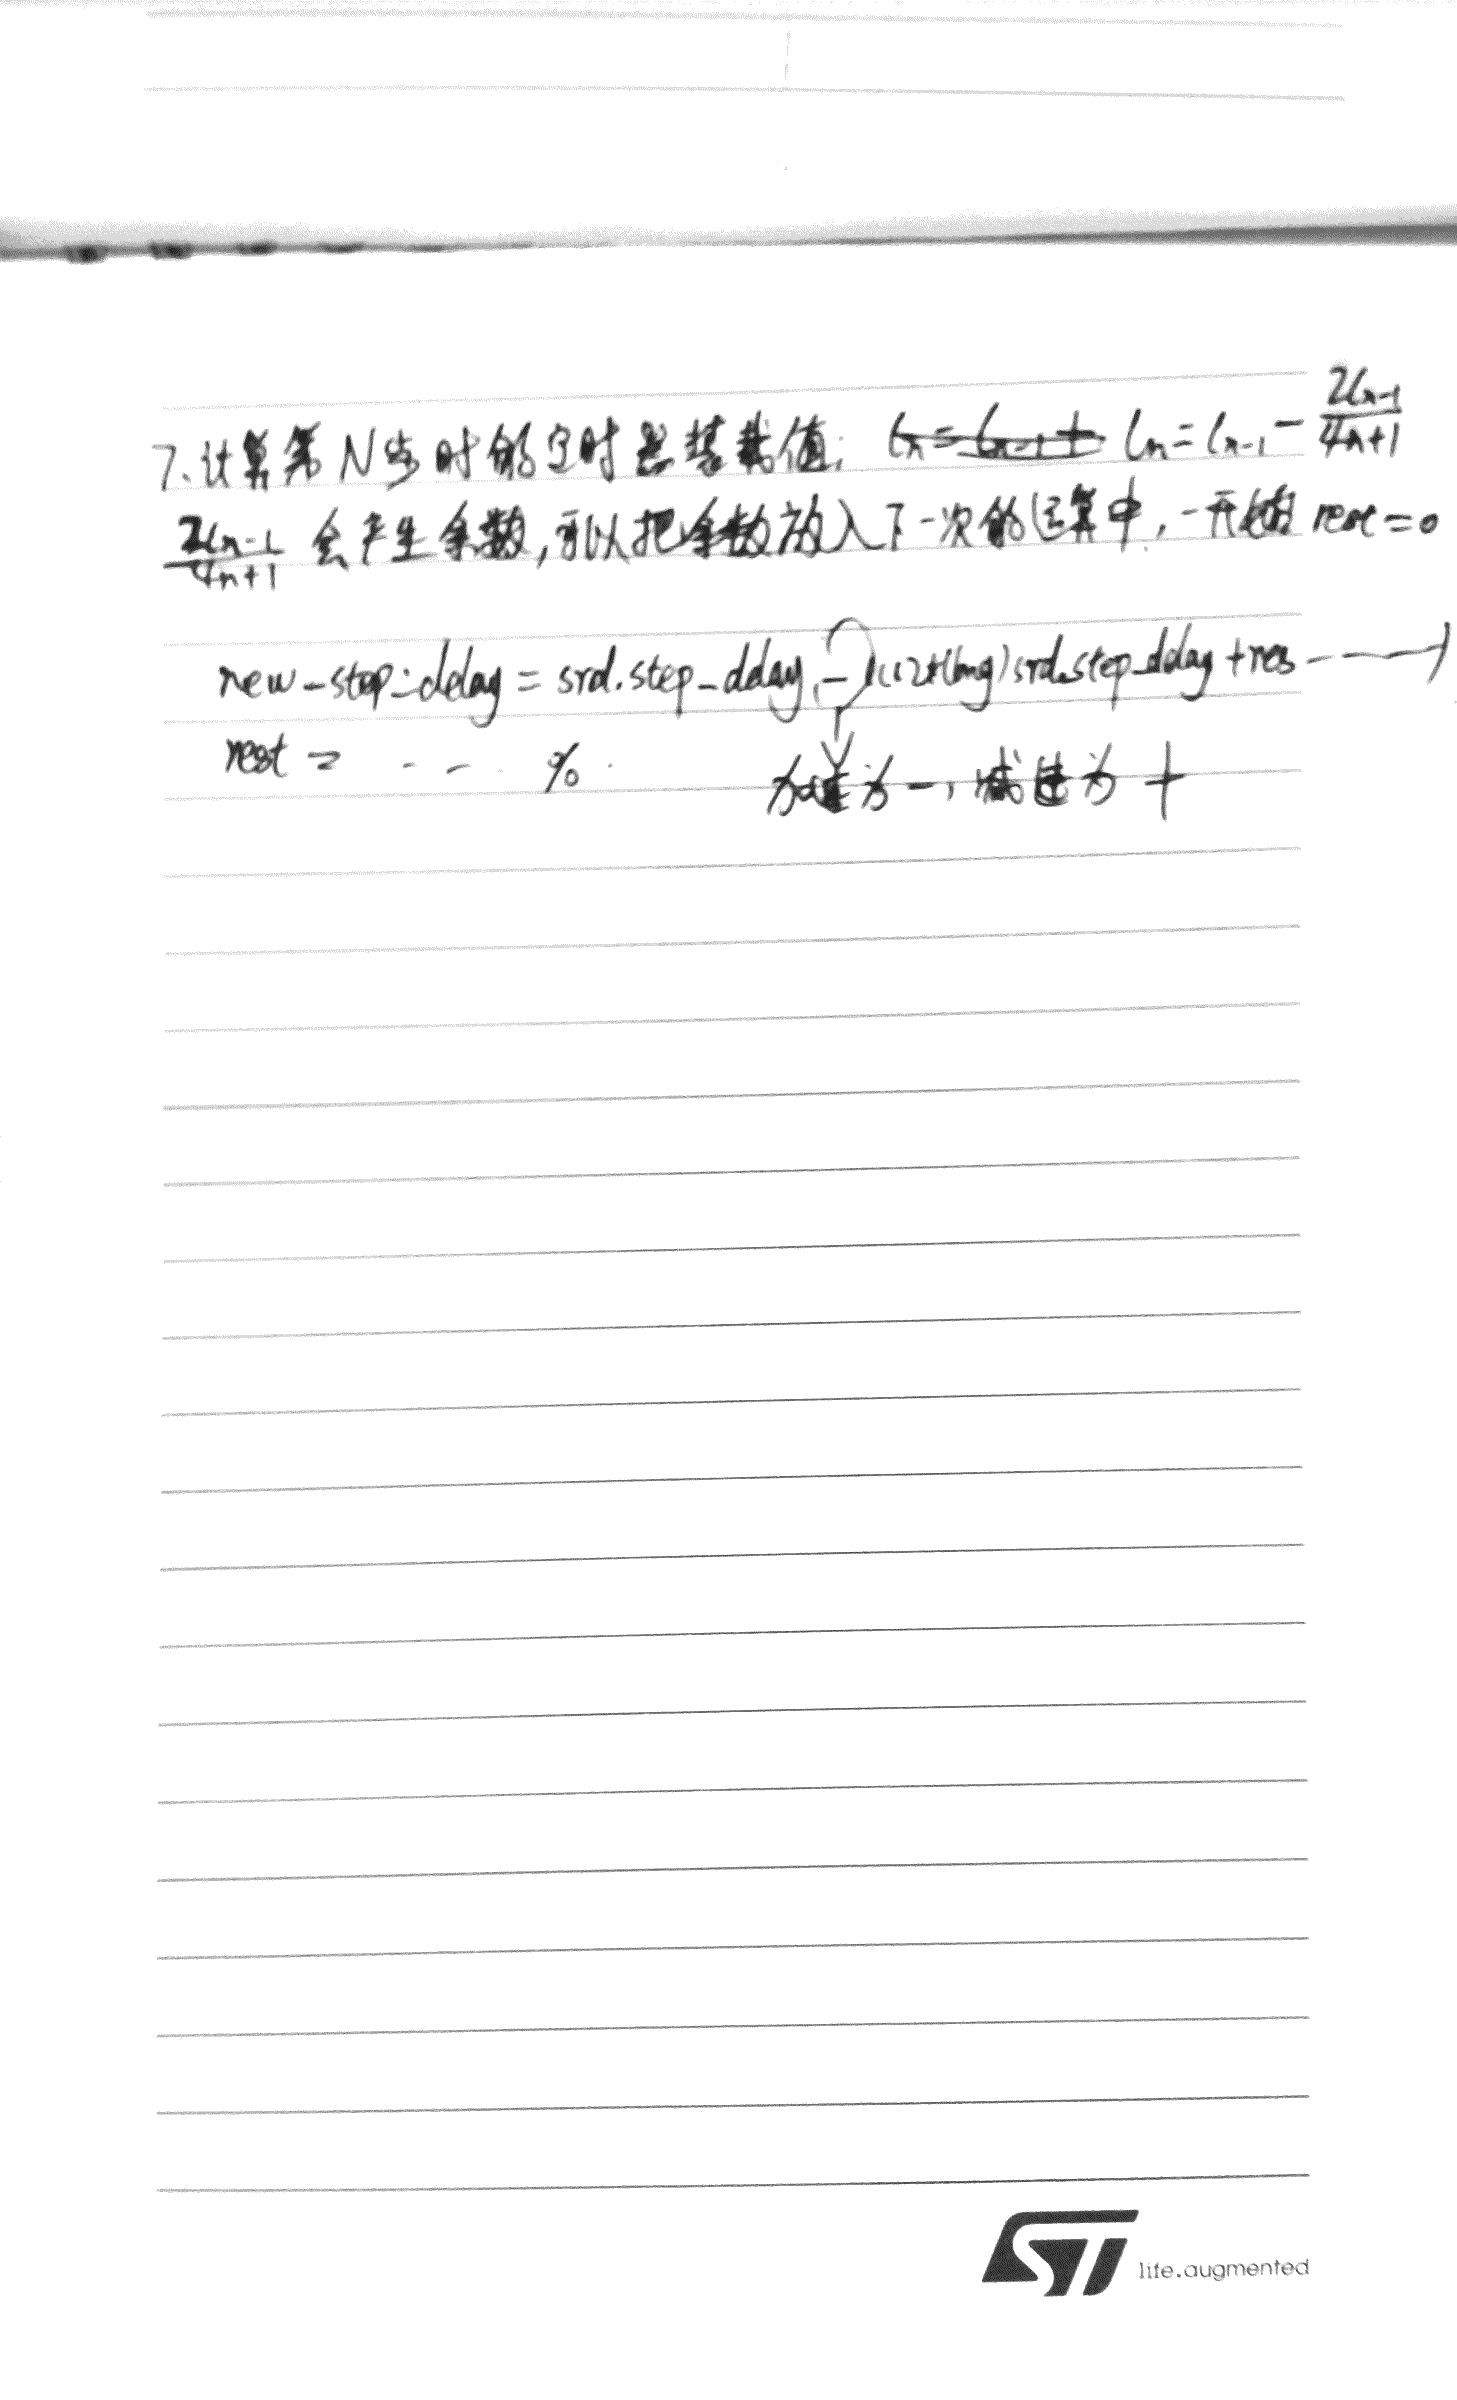 7.计算第N步时的定时器装载值: Cn=Cn-1-2Cn-1/4n+1
2Cn-1/4n+1 会产生余数,可以把余数放入下一次的运算中,一开始 rest=0
new_step_delay = srd.step_delay - (((2*(long)srd.step_delay+res------)
rest = - - - %
加速为-,减速为+
ST life.augmented